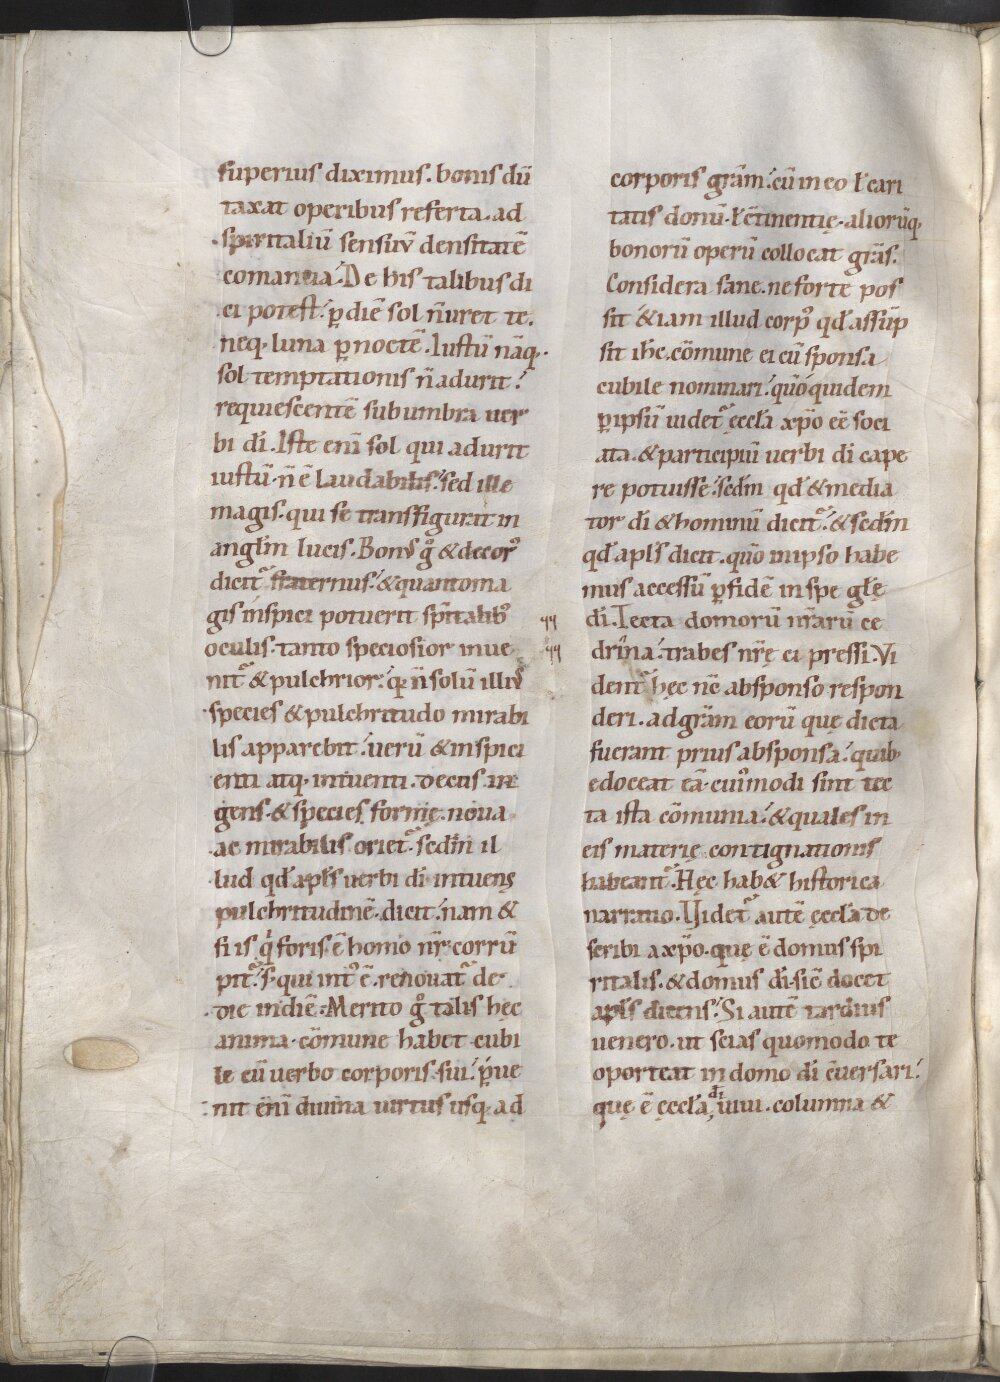 superius diximus. bonis dū
taxat operibus referta. ad
spiritaliū sensuū densitatē
comantia. De his talibus di
ci potest. ꝑ diē sol ñ uret te.
neq. luna ꝑ noctē. Iustū nāq.
sol temptationis ñ adurit.
requiescentē sub umbra uer
bi dī. Iste enī sol qui adurit
iustū. ñ ē laudabilis. sed ille
magis. qui se transfigurat in
anglm̄ lucis. Bonꝰ gͦ & decorꝰ
dicit᷑ fraternus. & quanto ma
gis inspici potuerit sp̄italibꝰ
oculis. tanto speciosior inue
nit᷑ & pulchrior. qr̄ ñ solū illiꝰ
species & pulchritudo mirabi
lis apparebit. uerū & inspici
enti atq. intuenti. decus in
gens. & species formę noua
ac mirabilis oriet᷑. scdm̄ il
lud qd̄ apłs uerbi dī intuens
pulchritudinē. dicit. nam &
si is qͥ foris ē homo nr̄. corrū
pit᷑. s. qui intꝰ ē. renouat᷑ de
die in diē. Merito gͦ talis hęc
anima. cōmune habet cubi
le cū uerbo corporis sui. ꝑue
nit enī diuina uirtus usq. ad
corporis grām. cū in eo ł cari
tatis donū. ł c̄tinentię. aliorūq.
bonorū operū collocat grās.
Considera sane. ne forte pos
sit &iam illud corpꝰ qd̄ assūp
sit ih̄c. cōmune ei cū sponsa
cubile nominari. quō quidem
ꝑ ipsū uidet᷑ ęccła xp̄o eē soci
ata. & participiū uerbi dī cape
re potuisse. scdm̄ qd̄ & media
tor dī & hominū dicit᷑. & scdm̄
qd̄ apłs dicit. quō in ipso habe
mus accessū ꝑ fidē in spe głę
dī. Tecta domorū nr̄arū ce
drina. trabes nr̄ę ci pressi. Vi
dent᷑ hęc nc̄ ab sponso respon
deri. ad grām eorū quę dicta
fuerant prius ab sponsa. quib.
edoceat eā. cuiꝰmodi sint tec
ta ista cōmunia. & quales in
eis materię contignationis
habeant᷑. Hęc hab& historica
narratio. Videt᷑ autē ęccła de
scribi a xp̄o. quę ē domus spi
ritalis. & domus dī. sic̄ docet
apłs dicens. Si autē tardius
uenero. ut scias quomodo te
oporteat in domo dī c̄uersari.
quę ē ęccła dī uiui. columna &